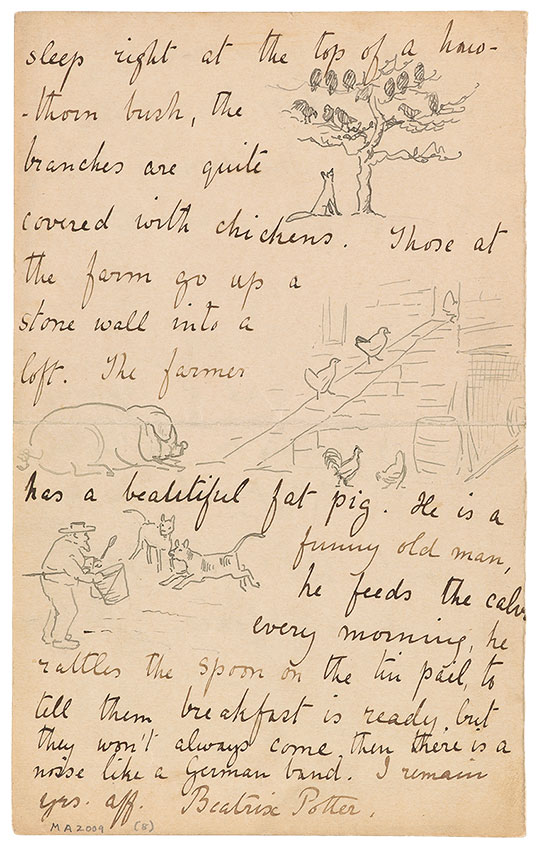 sleep right at the top of a haw-
-thorn bush, the
branches are quite
covered with chickens. Those at
the farm go up a
stone wall into a
loft. The farmer
has a beautiful fat pig. He is a
funny old man,
he feeds the calv
every morning, he
rattles the spoon on the tin pail, to
tell them breakfast is ready but
they won't always come, then there is a
noise like a German band. I remain
yrs. aff. Beatrix Potter.
MA2009 (8)